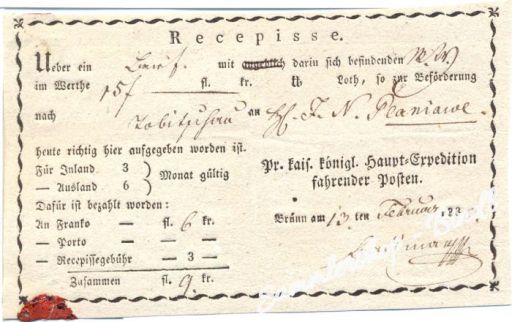 Recepisse.
Ueber ein Brief mit darin sich befindenden
im Werthe 15 f fl. kr. ℔ Loth, so zur Beförderung
nach Tobitschau an H. J. N. Planiawe
heute richtig hier aufgegeben worden ist.
Für Inland 3
— Ausland 6
Monat gültig
Dafür ist bezahlt worden:
An Franko — fl. 6 kr.
— Porto — — —
— Recepissegebühr — 3 —
Zusammen fl. 9 kr.
Pr. kais. königl. Haupt-Expedition
fahrender Posten.
Brünn am 13 ten Februar